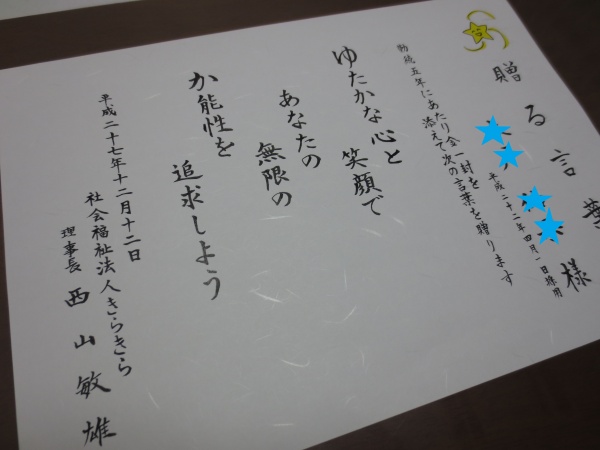 贈る言葉
様
平成二十二年四月一日採用
勤続五年にあたり金一封を
添えて次の言葉を贈ります
ゆたかな心と
笑顔で
あなたの
無限の
か能性を
追求しよう
平成二十七年十二月十二日
社会福祉法人きらきら
理事長 西山敏雄